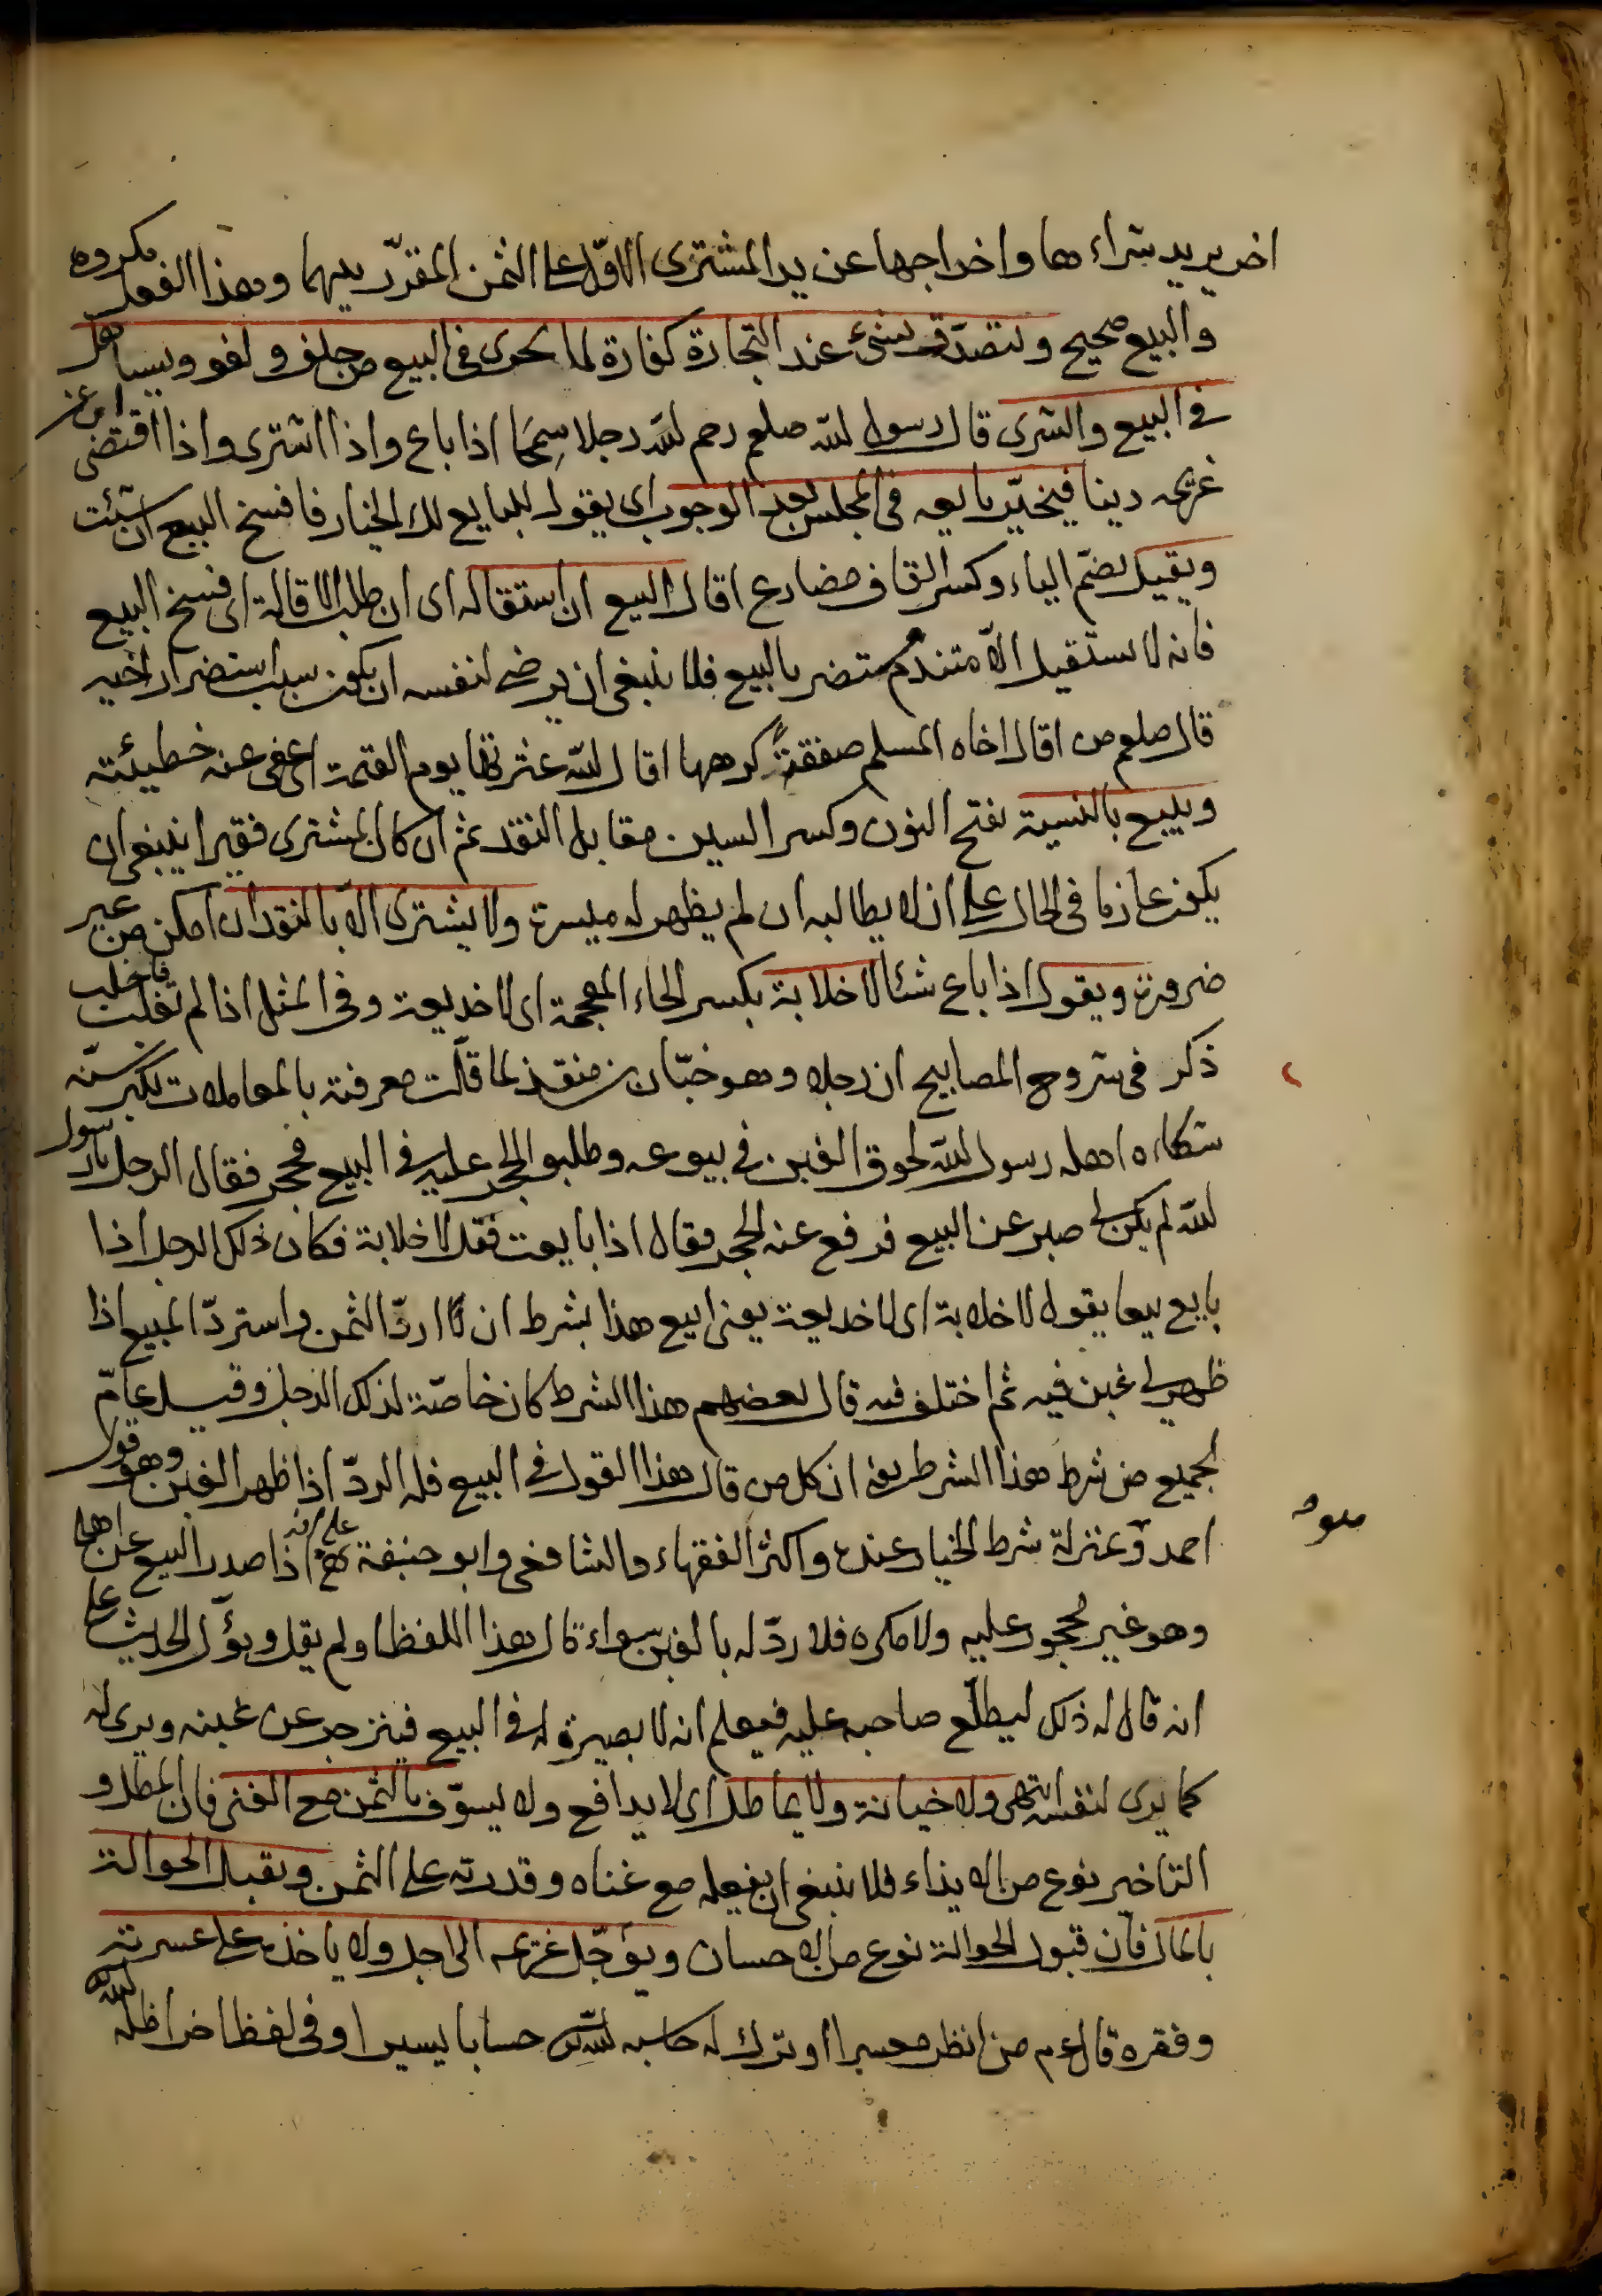 اخر يريد شراءها واخراجها عن يد المشترى الاول على الثمن المقدر بينهما وهذا الفعل مكروه
والبيع صحيح وتتصدق بشئ عند التجارة كفارة لما يجرى فى البيع من حلف ولغو ويساهل
فى البيع والشرى قال رسول الله صلعم رحم الله رجلا سمحا اذا باع واذا اشترى واذا اقتضى اى من
غريمه دينا فيخير بايعه فى المجلس بعد الوجوب اى يقول للبايع لك الخيار فافسخ البيع ان شئت
ويقيل بضم الياء وكسر القاف مضارع اقال البيع ان استقاله اى ان طلب الاقالة اى فسخ البيع
فانه لا يستقيل الا متندم مستضر بالبيع فلا ينبغى ان يرضى لنفسه ان يكون سبب استضرار اخيه
قال صلعم من اقال اخاه المسلم صفقة كرهها اقال الله عثرته يوم القيمة اى عفى عنه خطيئته
ويبيع بالنسية بفتح النون وكسر السين مقابل النقد ثم ان كان المشترى فقيرا ينبغى ان
يكون عازما فى الحال على ان لا يطالبه ان لم يظهر له ميسرة ولا يشترى الا بالنقد ان امكن من غير
ضرورة ويقول اذا باع شئا لا خلابة بكسر الخاء المعجمة اى لا خديعة وفى المثل اذا لم تغلب فاخلب
ذكر فى شروح المصابيح ان رجلا وهو حبان بن منقذ لما قلت معرفته بالمعاملات لكبر سنه
شكاه اهله رسول الله لحوق الغبن فى بيوعه وطلبو الحجر عليه فى البيع فحجر فقال الرجل يا رسول
الله لم يكن لى صبر عن البيع فرفع عنه الحجر فقال اذا بايعت فقل لا خلابة فكان ذلك الرجل اذا
بايع بيعا يقول لا خلابة اى لا خديعة يعنى ابيع هذا بشرط ان اردّ الثمن واستردّ المبيع اذا
ظهر لى غبن فيه ثم اختلف فيه قال بعضهم هذا الشرط كان خاصة لذلك الرجل وقيل عامّ
لجميع من شرط هذا الشرط يعنى ان كل من قال هذا القول فى البيع فله الردّ اذا ظهر الغبن وهو قول
احمد وبمنزلة شرط الخيار عنده واكثر الفقهاء والشافعى وابو حنيفة على انه اذا صدر البيع عن اهله
وهو غير محجور عليه ولا مكره فلا ردّ له بالغبن سواء قال هذا اللفظ او لم يقل ويؤّل الحديث على
انه قال له ذلك ليطلّع صاحبه عليه فيعلم انه لا بصيرة له فى البيع فينزجر عن غبنه ويرى له
كما يرى لنفسه انتهى ولا خيانة ولا يماطل اى لا يدافع ولا يسوّف بالثمن مع الغنى فان المطل و
التاخير نوع من الايذاء فلا ينبغى ان يفعله مع غناه وقدرته على الثمن ويقبل الحوالة
بالمال فان قبول الحوالة نوع من الاحسان ويؤجّل غريمه الى اجل ولا ياخذه على عسرته
وفقره قال عم من انظر معسرا او ترك له حاسبه الله حسابا يسيرا وفى لفظ اخر اظله الله